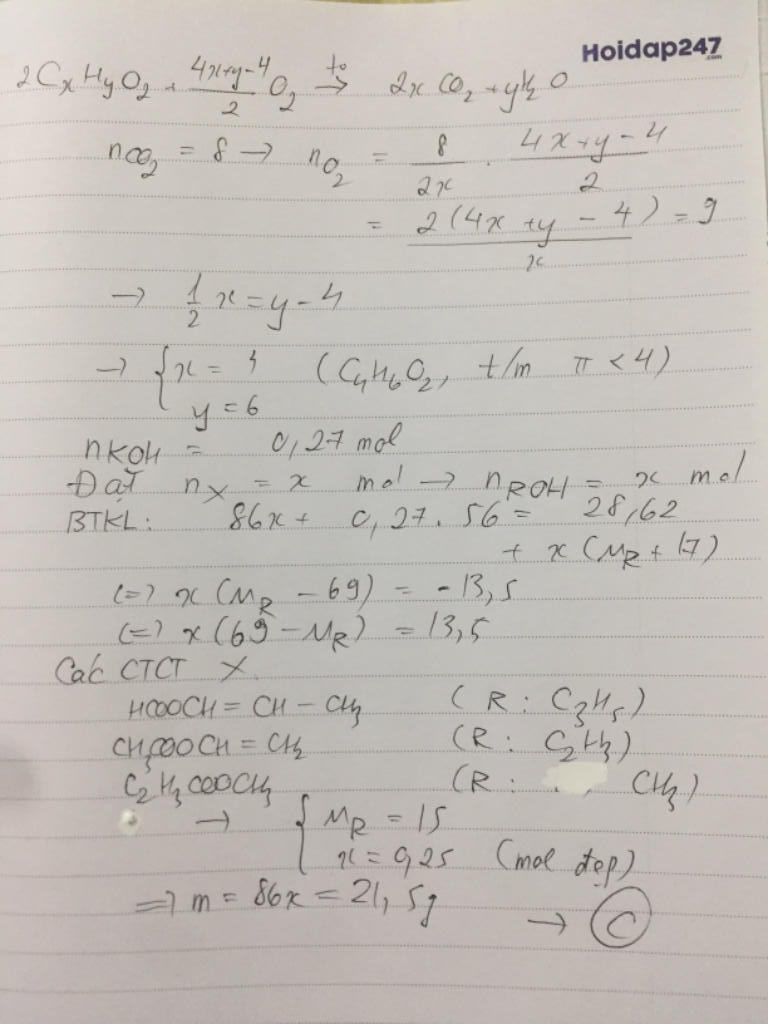 Hoidap247
.com
2CxHyO2 + 4x+y-4/2 O2 to→ 2xCO2 + yH2O
nCO2 = 8 → nO2 = 8/2x . 4x+y-4/2
= 2(4x+y-4)/x = 9
→ 1/2 x = y - 4
→ { x = 4 (C4H6O2, t/m π < 4)
y = 6
nKOH = 0,27 mol
Đặt nX = x mol → nROH = x mol
BTKL: 86x + 0,27.56 = 28,62
+ x(MR + 17)
(=) x(MR - 69) = -13,5
(=) x(69 - MR) = 13,5
Các CTCT X
HCOOCH = CH - CH3 (R: C3H5)
CH3COOCH = CH2 (R: C2H3)
C2H3COOCH3 (R: CH3)
→ { MR = 15
x = 0,25 (mol đẹp)
=> m = 86x = 21,5g → C